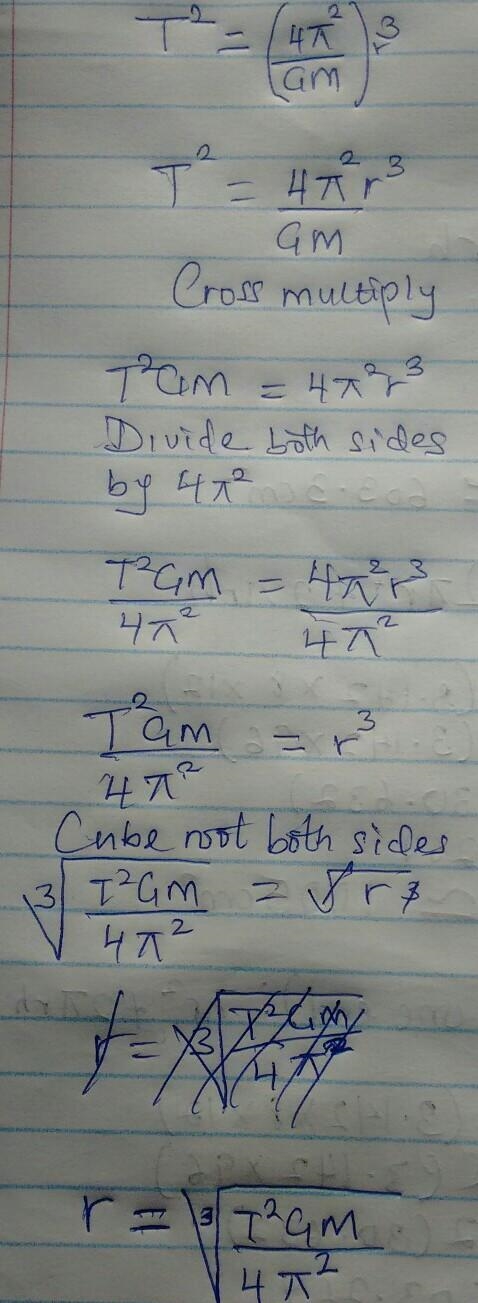 T² = (4π²/GM) r³
T² = 4π²r³/GM
Cross multiply
T²GM = 4π²r³
Divide both sides
by 4π²
T²GM/4π² = 4π²r³/4π²
T²GM/4π² = r³
Cube root both sides
∛(T²GM/4π²) = ∛r³
r = ∛(T²GM/4π²)
r = ∛(T²GM/4π²)